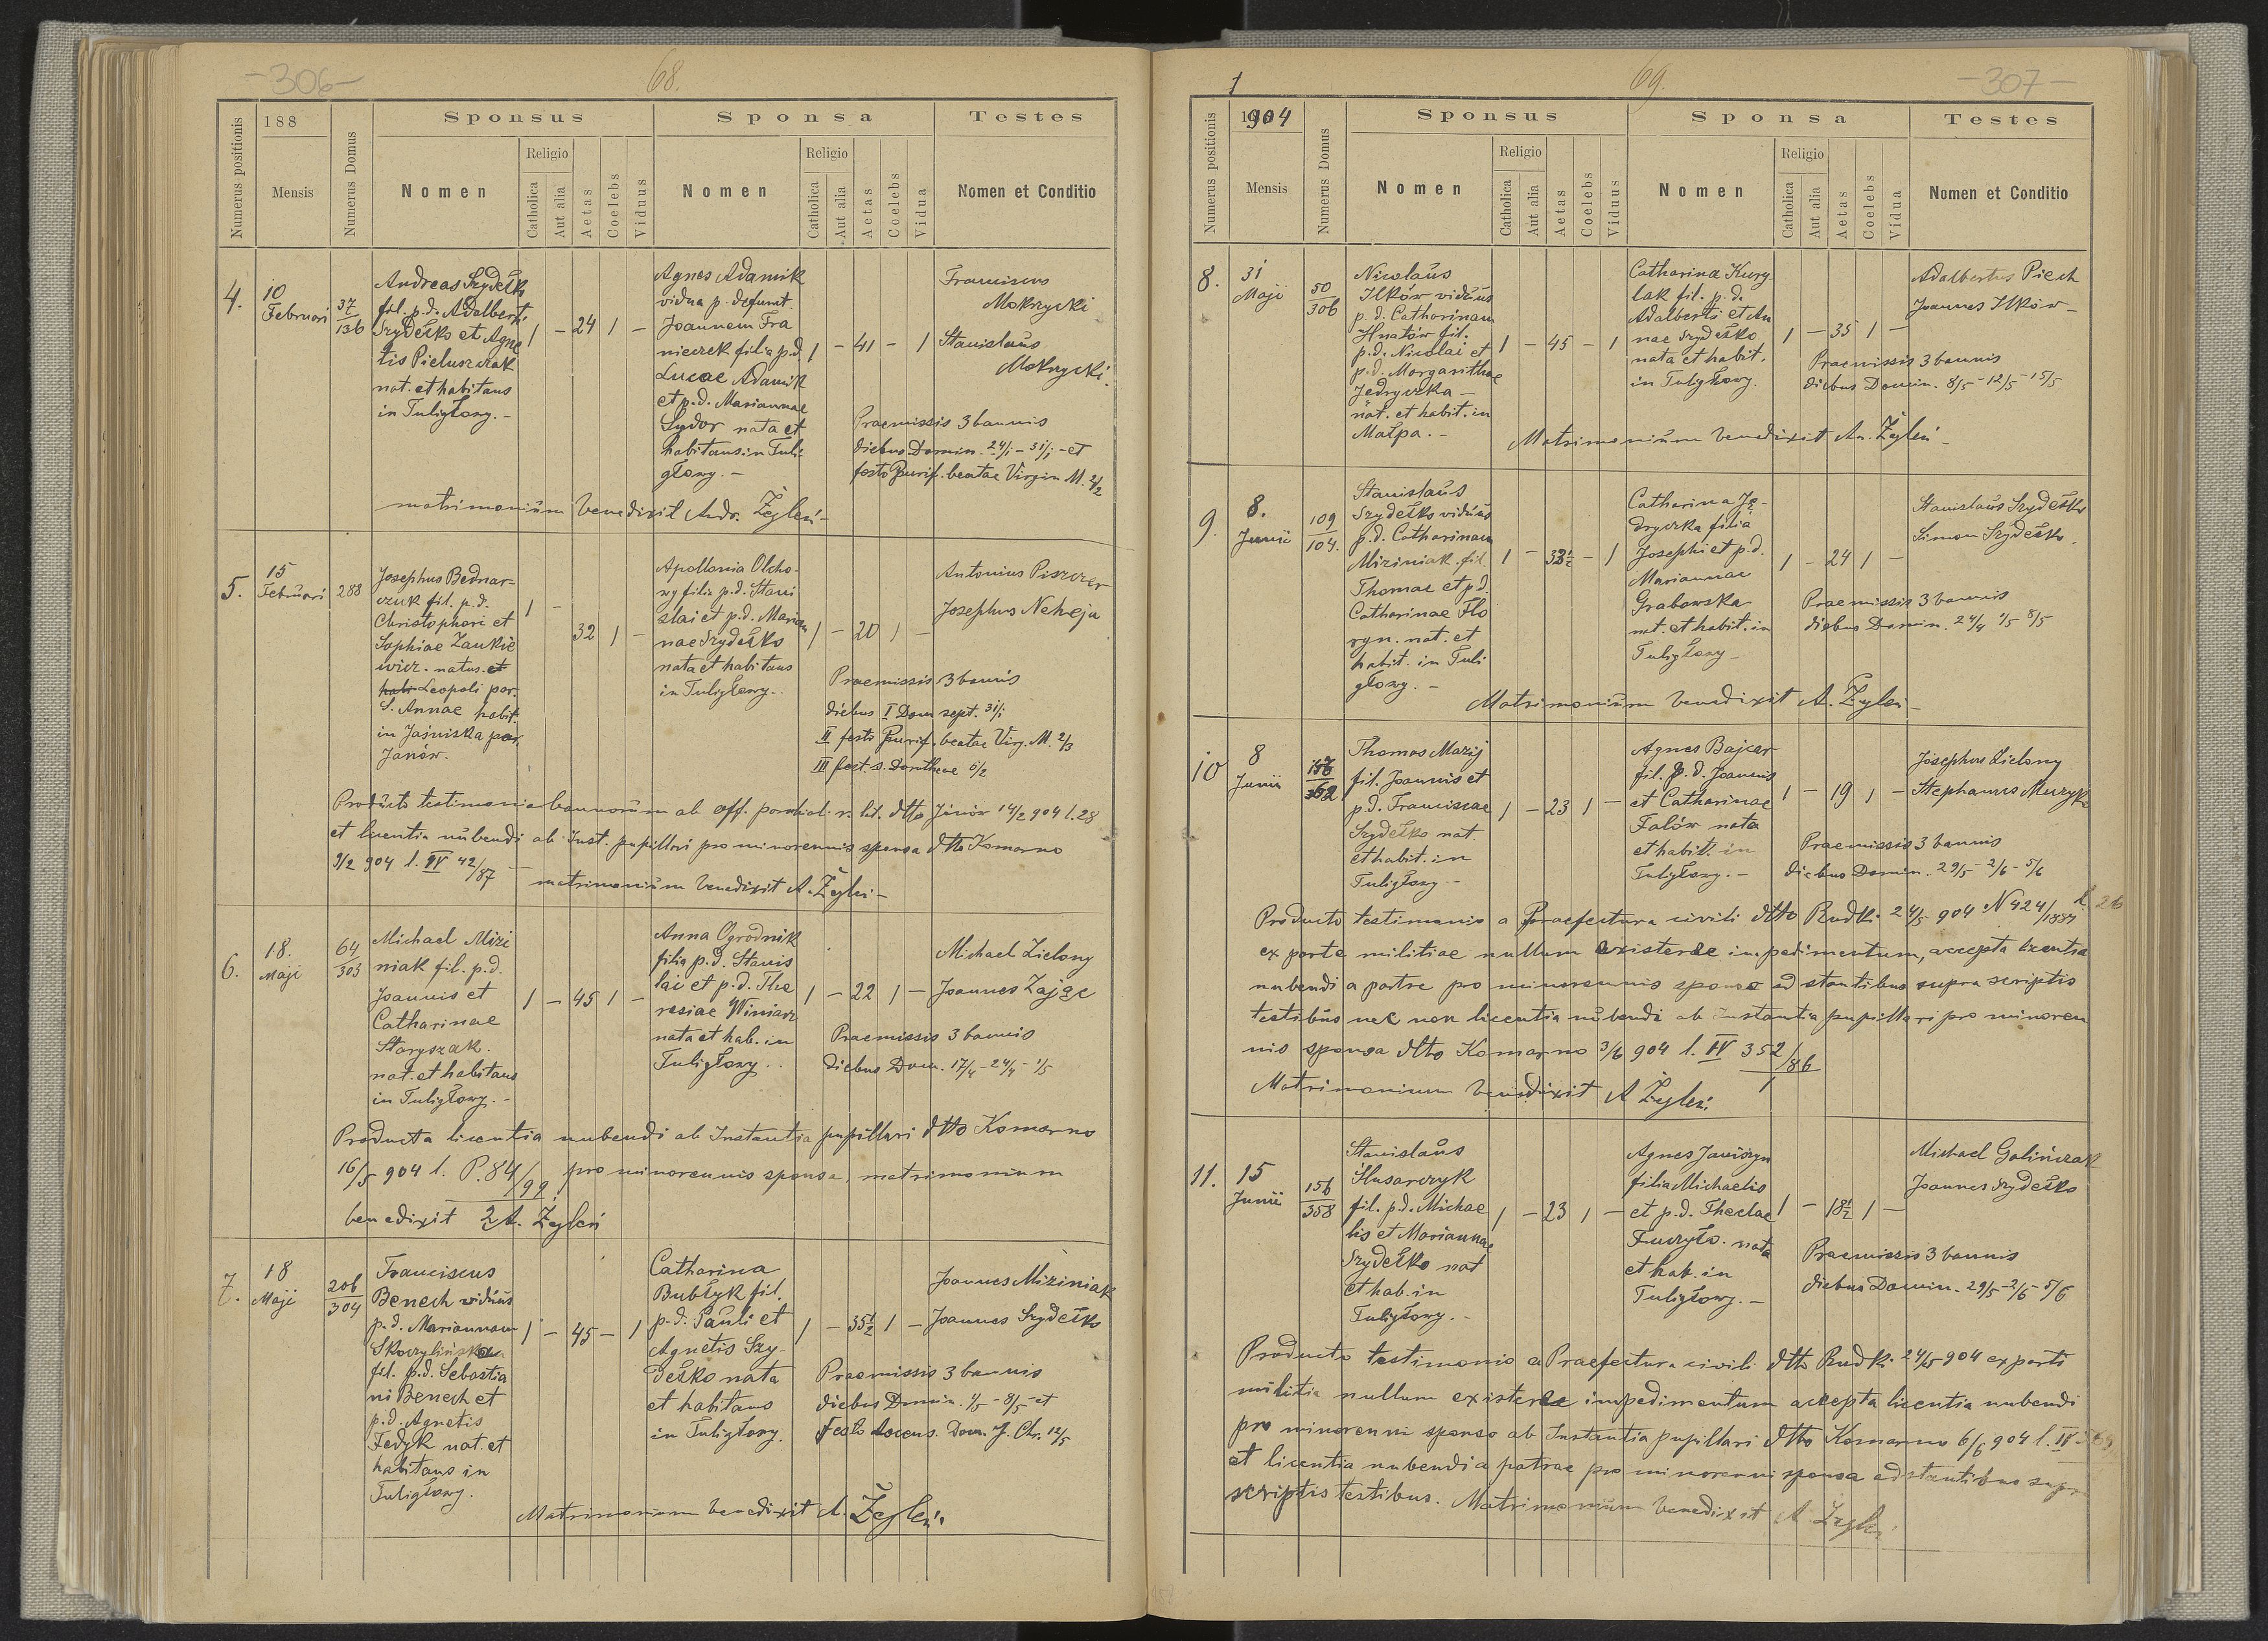 -306-
68.
Numerus positionis
188
Mensis
Numerus Domus
Sponsus
Sponsa
Testes
Nomen
Religio
Catholica
Aut alia
Aetas
Coelebs
Viduus
Nomen
Religio
Catholica
Aut alia
Aetas
Coelebs
Vidua
Nomen et Conditio
4.
10
Februari
37/136
Andreas Szydełko
fil. p.d. Adalberti
Szydełko et Agne
tis Pieluszczak
nat. et habitans
in Tuligłowy. -
1 - 24 1 -
Agnes Adamik
vidua p. defunct.
Joannem Fra
nieczek filia p.d.
Lucae Adamik
et p.d. Mariannae
Sydor nata et
habitans in Tuli-
głowy. -
1 - 41 - 1
Franciscus
Mokrzycki
Stanislaus
Mokrzycki.
Praemissis 3 bannis
diebus Domin. 24/1 - 31/1 - et
festo Purif. beatae Virgin M. 2/2
matrimonium benedixit Andr. Żegleń -
5.
15
Februari
288
Josephus Bednar-
czuk fil. p.d.
Christophori et
Sophiae Zaukie
wicz. natus. et
habi Leopoli par.
S. Annae habit.
in Jaśniska par.
Janów.
1 - 32 1 -
Apollonia Olcho-
wy filia p.d. Stani
slai et p.d. Marian
nae Szydełko
nata et habitans
in Tuligłowy. -
1 - 20 1 -
Antonius Piszczer
Josephus Neheja
Praemissis 3 bannis
diebus I Dom sept. 31/1
II festo Purif. beatae Virg. M. 2/3
III fest. s. Dorotheae 6/2
Producto testimonio bannorum ab off. parochial. r. lat. dtto Janów 14/2 904 l. 28
et licentia nubendi ab Inst. pupillari pro minorennis sponsa dtto Komarno
9/2 904 l. IV 42/87 - matrimonium benedixit A. Żegleń -
6.
18.
Maji
64/303
Michael Mizi
niak fil. p.d.
Joannis et
Catharinae
Staryszak.
nat. et habitans
in Tuligłowy. -
1 - 45 1 -
Anna Ogrodnik
filia p.d. Stanis
lai et p.d. The
resiae Winiarz
nata et hab. in
Tuligłowy. .
1 - 22 1 -
Michael Zielony
Joannes Zając
Praemissis 3 bannis
diebus Dom. 17/4 - 24/4 - 1/5
Producta licentia nubendi ab Instantia pupillari dtto Komarno
16/5 904 l. P. 84/99 pro minorennis sponsa, matrimonium
benedixit A. Żegleń
7.
18
Maji
206/304
Franciscus
Benech viduus
p.d. Mariannam
Skoczylińska
fil. p.d. Sebastia
ni Benech et
p.d. Agnetis
Fedyk nat. et
habitans in
Tuligłowy.
1 - 45 - 1
Catharina
Bubłyk fil.
p.d. Pauli et
Agnetis Szy-
dełko nata
et habitans
in Tuligłowy.
1 - 35½ 1 -
Joannes Miziniak
Joannes Szydełko
Praemissis 3 bannis
diebus Domin. 1/5 - 8/5 - et
Festo Ascens. Dom. J. Chr. 12/5
Matrimonium benedixit A. Żegleń.
1
69.
-307-
Numerus positionis
1904
Mensis
Numerus Domus
Sponsus
Sponsa
Testes
Nomen
Religio
Catholica
Aut alia
Aetas
Coelebs
Viduus
Nomen
Religio
Catholica
Aut alia
Aetas
Coelebs
Vidua
Nomen et Conditio
8.
31
Maji
50/306
Nicolaus
Ilków viduus
p.d. Catharinam
Hnatów fil.
p.d. Nicolai et
p.d. Margarithae
Jedryczka -
nat. et habit. in
Małpa. -
1 - 45 - 1
Catharina Kury-
lak fil. p.d.
Adalberti et An
nae Szydełko
nata et habit.
in Tuligłowy.
1 - 35 1 -
Adalbertus Piech
Joannes Ilków -
Praemissis 3 bannis
diebus Domin. 8/5 - 12/5 - 15/5
Matrimonium benedixit An. Żegleń -
9.
8.
Junii
109/104.
Stanislaus
Szydełko viduus
p.d. Catharinam
Miziniak. fil.
Thomae et p.d.
Catharinae Flo
ryn. nat. et
habit. in Tuli
głowy. -
1 - 32½ - 1
Catharina Ję-
dryczka filia
Josephi et p.d.
Mariannae
Grabowska
nat. et habit. in
Tuligłowy -
1 - 24 1 -
Stanislaus Szydełko
Simon Szydełko.
Praemissis 3 bannis
diebus Domin. 24/4 1/5 8/5
Matrimonium benedixit A. Żegleń -
10
8
Junii
Thomas Mazij
fil. Joannis et
p.d. Franciscae
Szydełko nat.
et habit. in
Tuligłowy -
1 - 23 1 -
Agnes Bajcar
fil. p.d. Joannis
et Catharinae
Falów nata
et habit. in
Tuligłowy. -
1 - 19 1 -
Josephus Zielony
Stephanus Muzyka
Praemissis 3 bannis
diebus Domin. 29/5 - 2/6 - 5/6
Producto testimonio a Praefectura civili dtto Rudki 24/5 904 N 424/1884 l. 26
ex parte militiae nullum existerae impedimentum, accepta licentia
nubendi a patre pro minorennis sponso adstantibus supra scriptis
testibus nec non licentia nubendi ab Instantia pupillari pro minoren
nis sponsa dtto Komarno 3/6 904 l. IV 352/86
Matrimonium benedixit A Żegleń.
11.
15
Junii
156/358
Stanislaus
Ślusarczyk
fil. p.d. Michae
lis et Mariannae
Szydełko nat
et hab. in
Tuligłowy. -
1 - 23 1 -
Agnes Janiszyn
filia Michaelis
et p.d. Theclae
Fuczyło. nata
et hab. in
Tuligłowy. -
1 - 18½ 1 -
Michael Galińczak
Joannes Szydełko
Praemissis 3 bannis
diebus Domin. 29/5 - 2/6 - 5/6
Producto testimonio a Praefectura civili dtto Rudki 24/5 904 ex parti
militia nullum existerae impedimentum accepta licentia nubendi
pro minorenni sponso ab Instantia pupillari dtto Komarno 6/6 904 l. IV
et licentia nubendi a patrae pro minorenni sponsa adstantibus supra
scriptis testibus. Matrimonium benedixit A. Żegleń